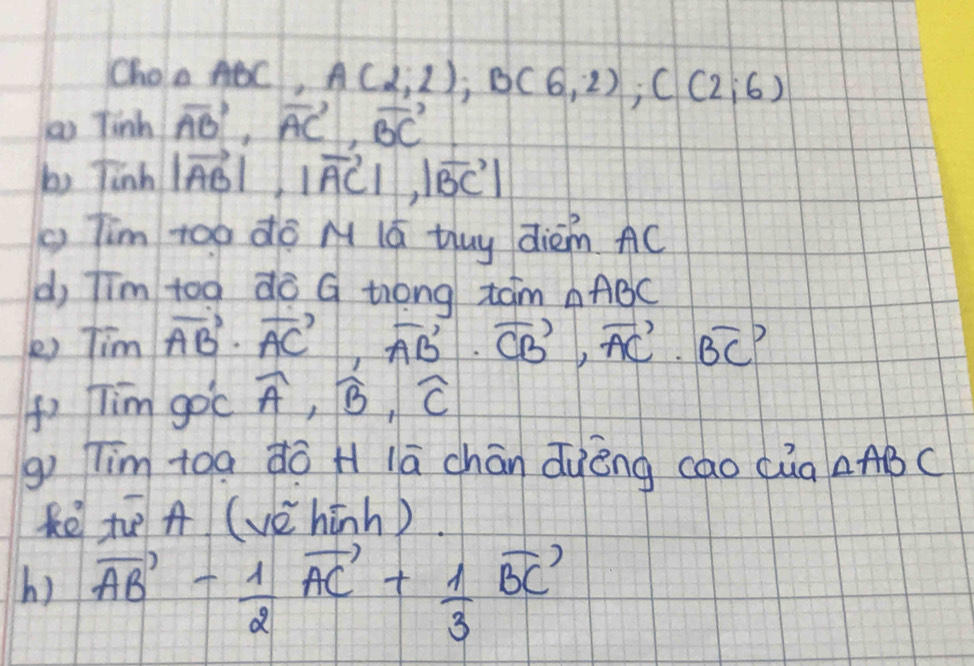 Cho △ ABC, A(2;2); B(6;2); C(2;6)
a) Tính $\overrightarrow{AB}$, $\overrightarrow{AC}$, $\overrightarrow{BC}$
b) Tính $|\overrightarrow{AB}|$, $|\overrightarrow{AC}|$, $|\overrightarrow{BC}|$
c) Tìm toạ độ M là truy điểm AC
d) Tìm toạ độ G trọng tâm △ABC
e) Tìm $\overrightarrow{AB} \cdot \overrightarrow{AC}$, $\overrightarrow{AB} \cdot \overrightarrow{CB}$, $\overrightarrow{AC} \cdot \overrightarrow{BC}$
f) Tìm góc $\widehat{A}$, $\widehat{B}$, $\widehat{C}$
g) Tìm toạ độ H là chân đường cao của △ABC
kẻ từ A (vẽ hình).
h) $\overrightarrow{AB} - \frac{1}{2} \overrightarrow{AC} + \frac{1}{3} \overrightarrow{BC}$